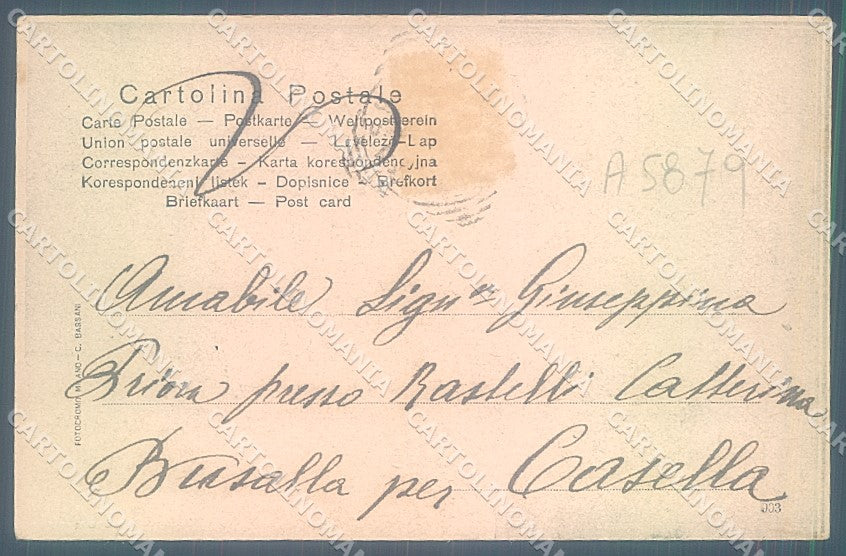 Cartolina Postale
Carte Postale — Postkarte — Weltpostverein
Union postale universelle — Levelező-Lap
Correspondenzkarte - Karta korespondencyjna
Korespondeneni listek - Dopisnice - Brefkort
Briefkaart — Post card
A 5879
Amabile Sign.ra Giuseppina
presso Rastelli Catterina
Busalla per Casella
FOTOCROMIA MILANO — C. BASSANI
003
CARTOLINOMANIA